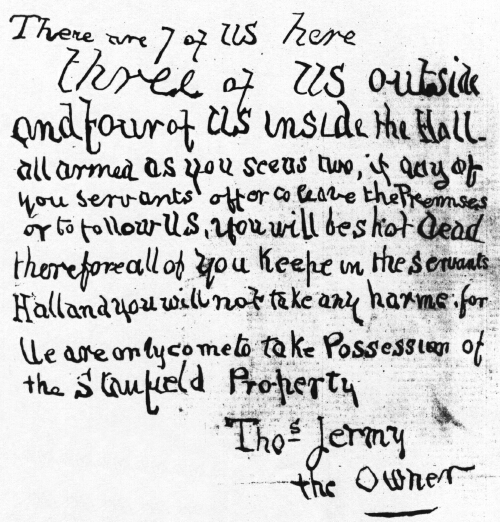 There are 7 of US here
three of US outside
and four of US inside the Hall.
all armed as you see us two, if any of
you servants offer to leave the Premises
or to follow US, you will be shot dead
therefore all of you Keepe in the Servants
Hall and you will not take any harme. for
We are only come to take Possession of
the Stanfield Property
Thos Jermy
the Owner